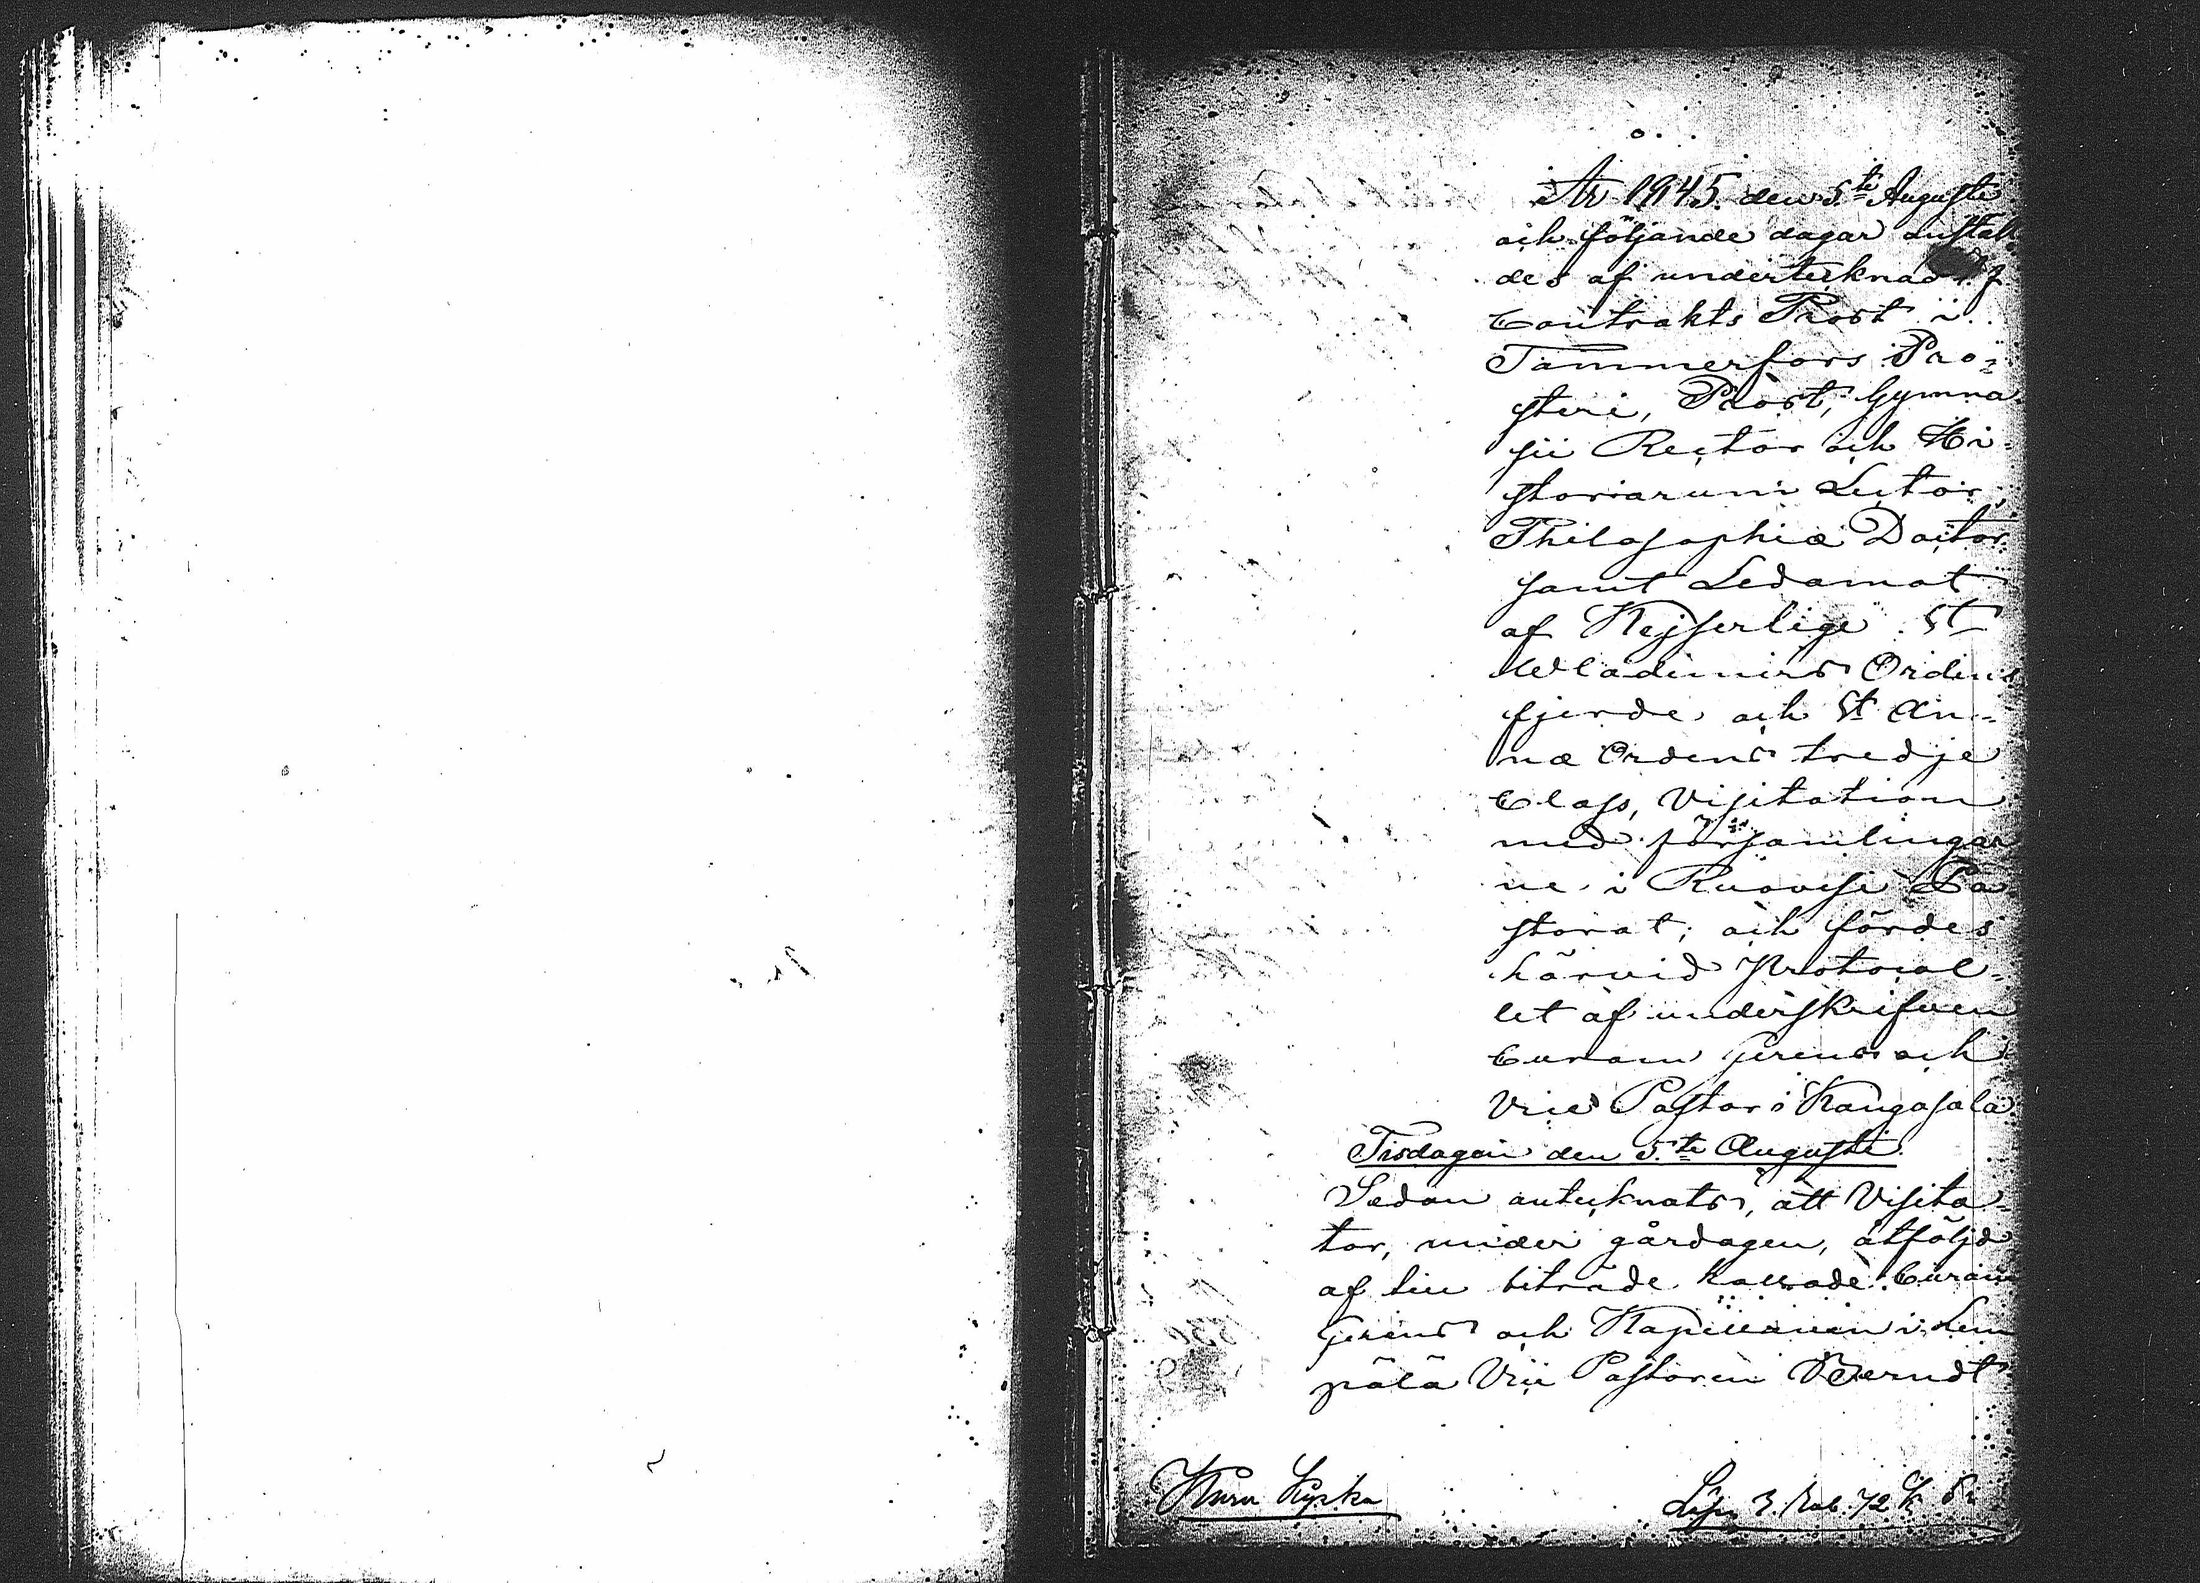 År 1845. den 5te Augusti
och följande dagar anstäl-
des af undertecknad t.f.
Contrakts Prost i
Tammerfors Pro-
steri, Prost, Gymna-
sii Rector och Hi-
storiarum Lector,
Philosophiæ Doctor
samt Ledamot
af Kejserlige St
Wladimirs Ordens
fjerde och St An-
næ Ordens tredje
Class, Visitation
med församlingar
ne i Ruovesi Pa
storat; och fördes
härvid Protocol-
let af underskrifven
Curam Gerens och
Vice Pastor i Kangasala
Tisdagen den 5.te Augusti.
Sedan antecknats, att Visita-
tor, under gårdagen, åtföljd
af sin biträde kallade Curam
Gerens och Kapellanen i Lem
pälä Vice Pastoren Berndt
Kuru Kyrka
Lösn 3. Rub. 72 K Sr